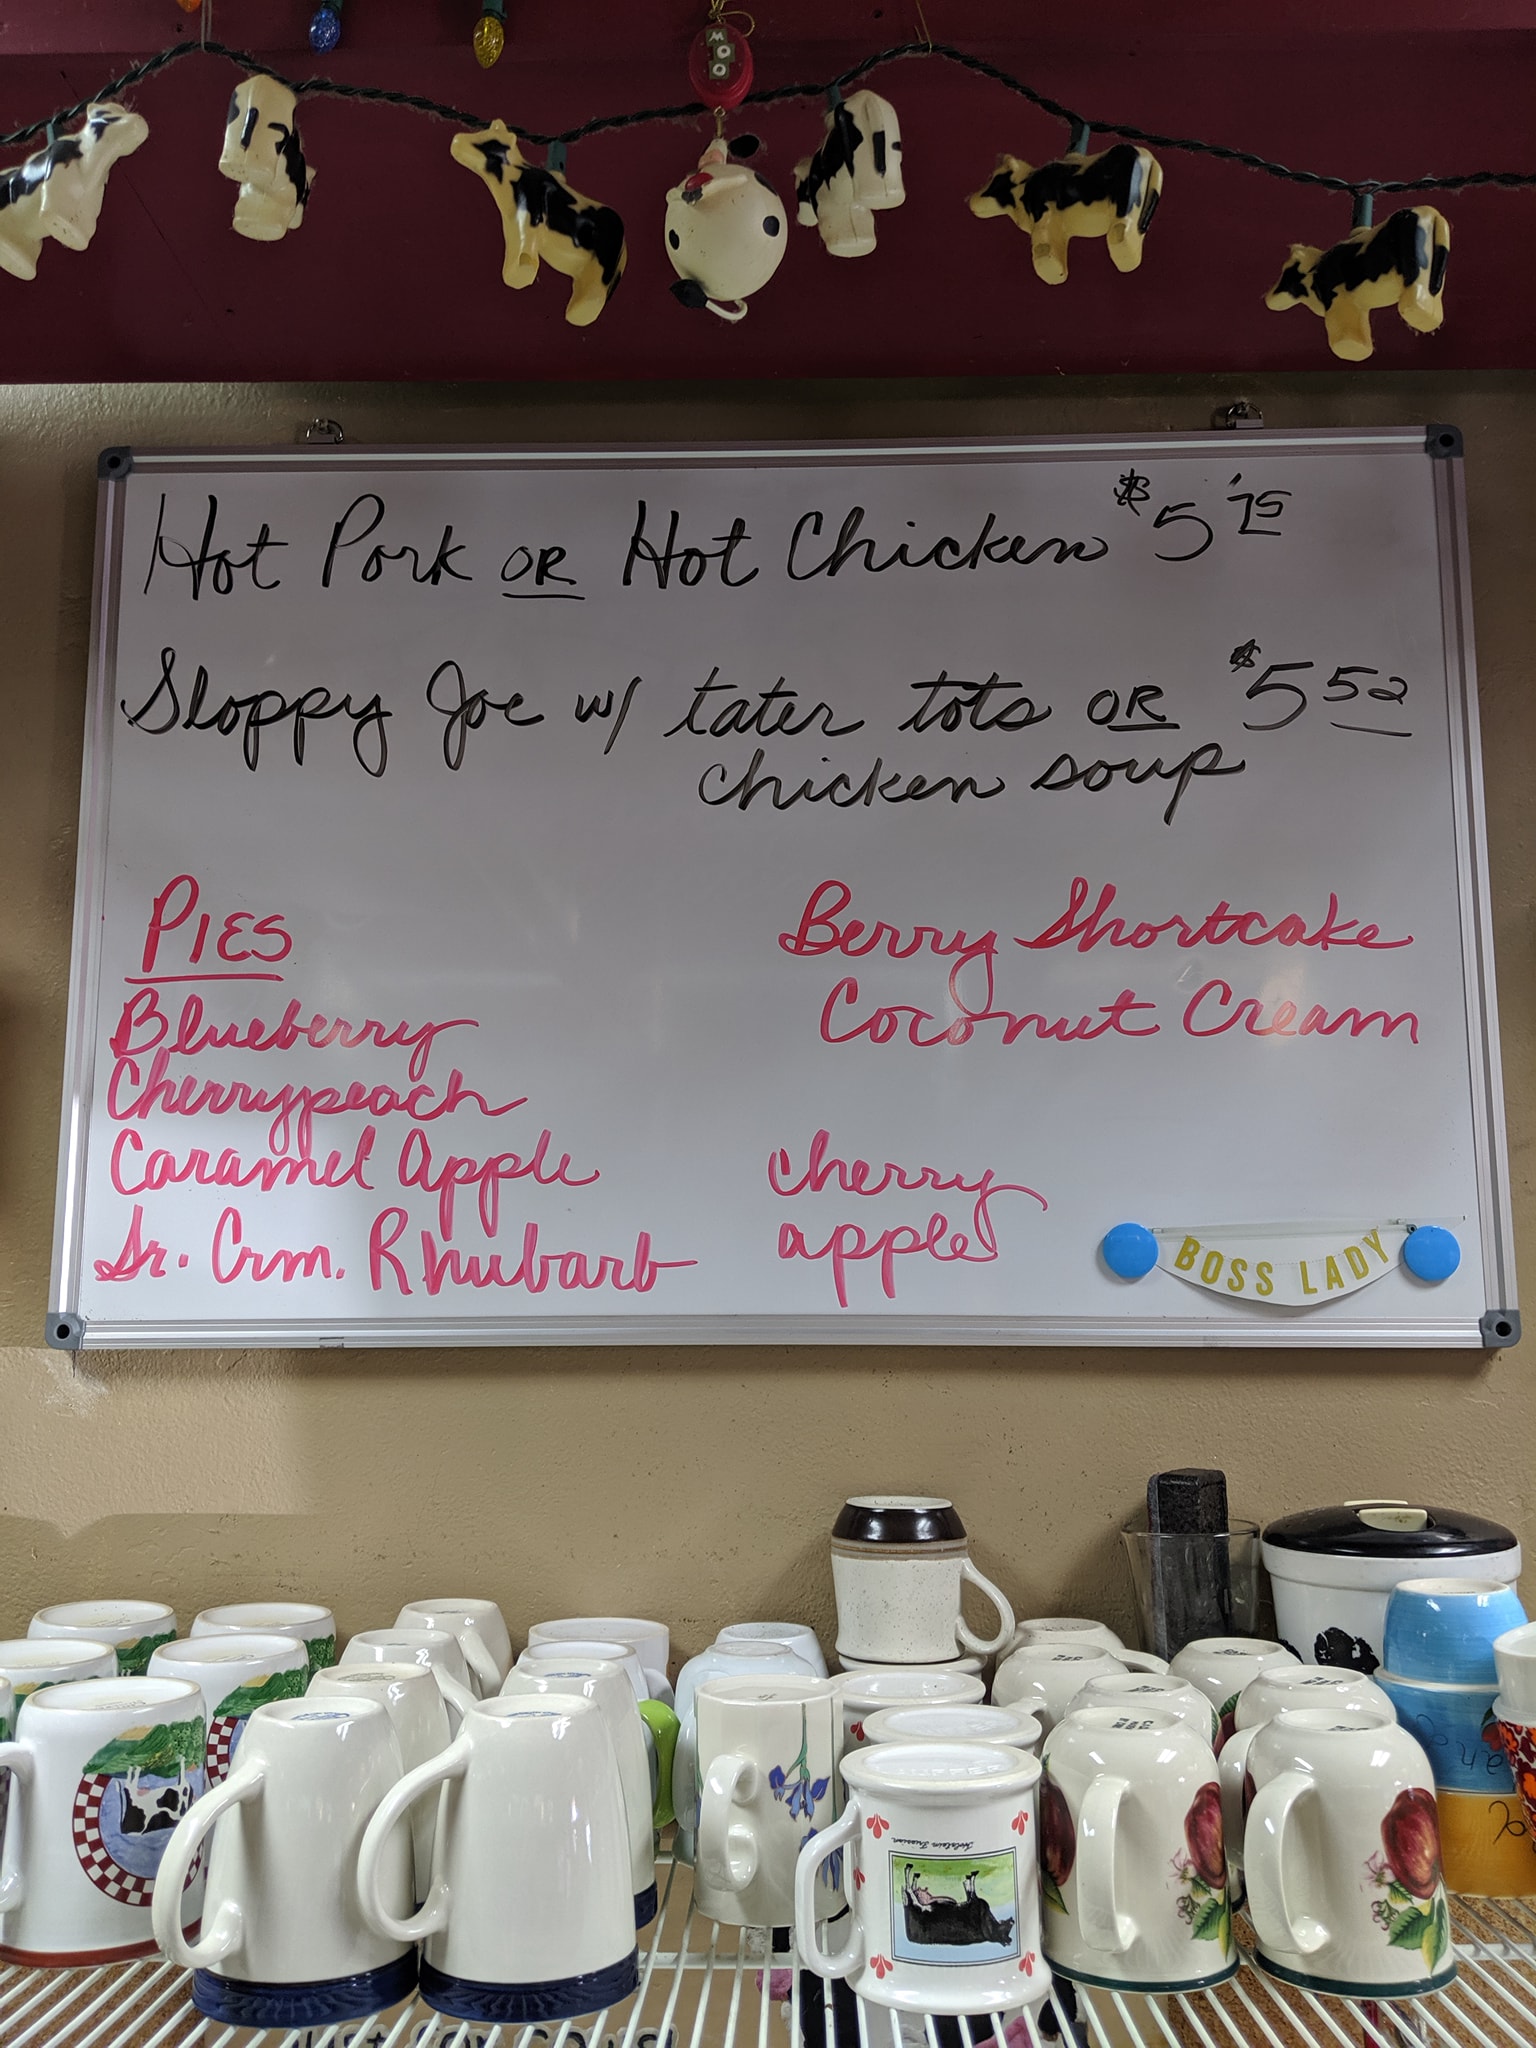 MOO
Hot Pork OR Hot Chicken $5.75
Sloppy Joe w/ tater tots OR $5 52
chicken soup
PIES
Blueberry
Cherrypeach
Caramel Apple
Sr. Crm. Rhubarb
Berry Shortcake
Coconut Cream
cherry
apple
BOSS LADY
Holstein Friesian